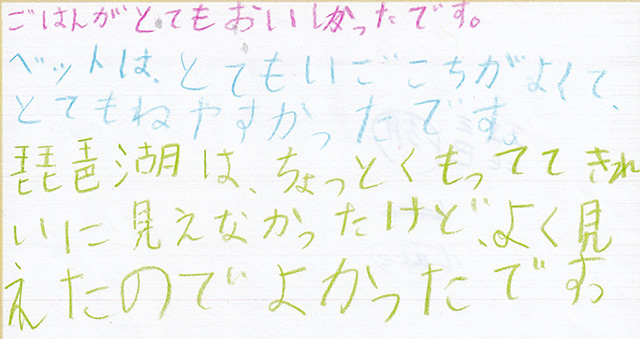 ごはんがとてもおいしかったです。
ベットは、とてもいごこちがよくて、
とてもねやすかったです。
琵琶湖は、ちょっとくもっててきれ
いに見えなかったけど、よく見
えたのでよかったです。